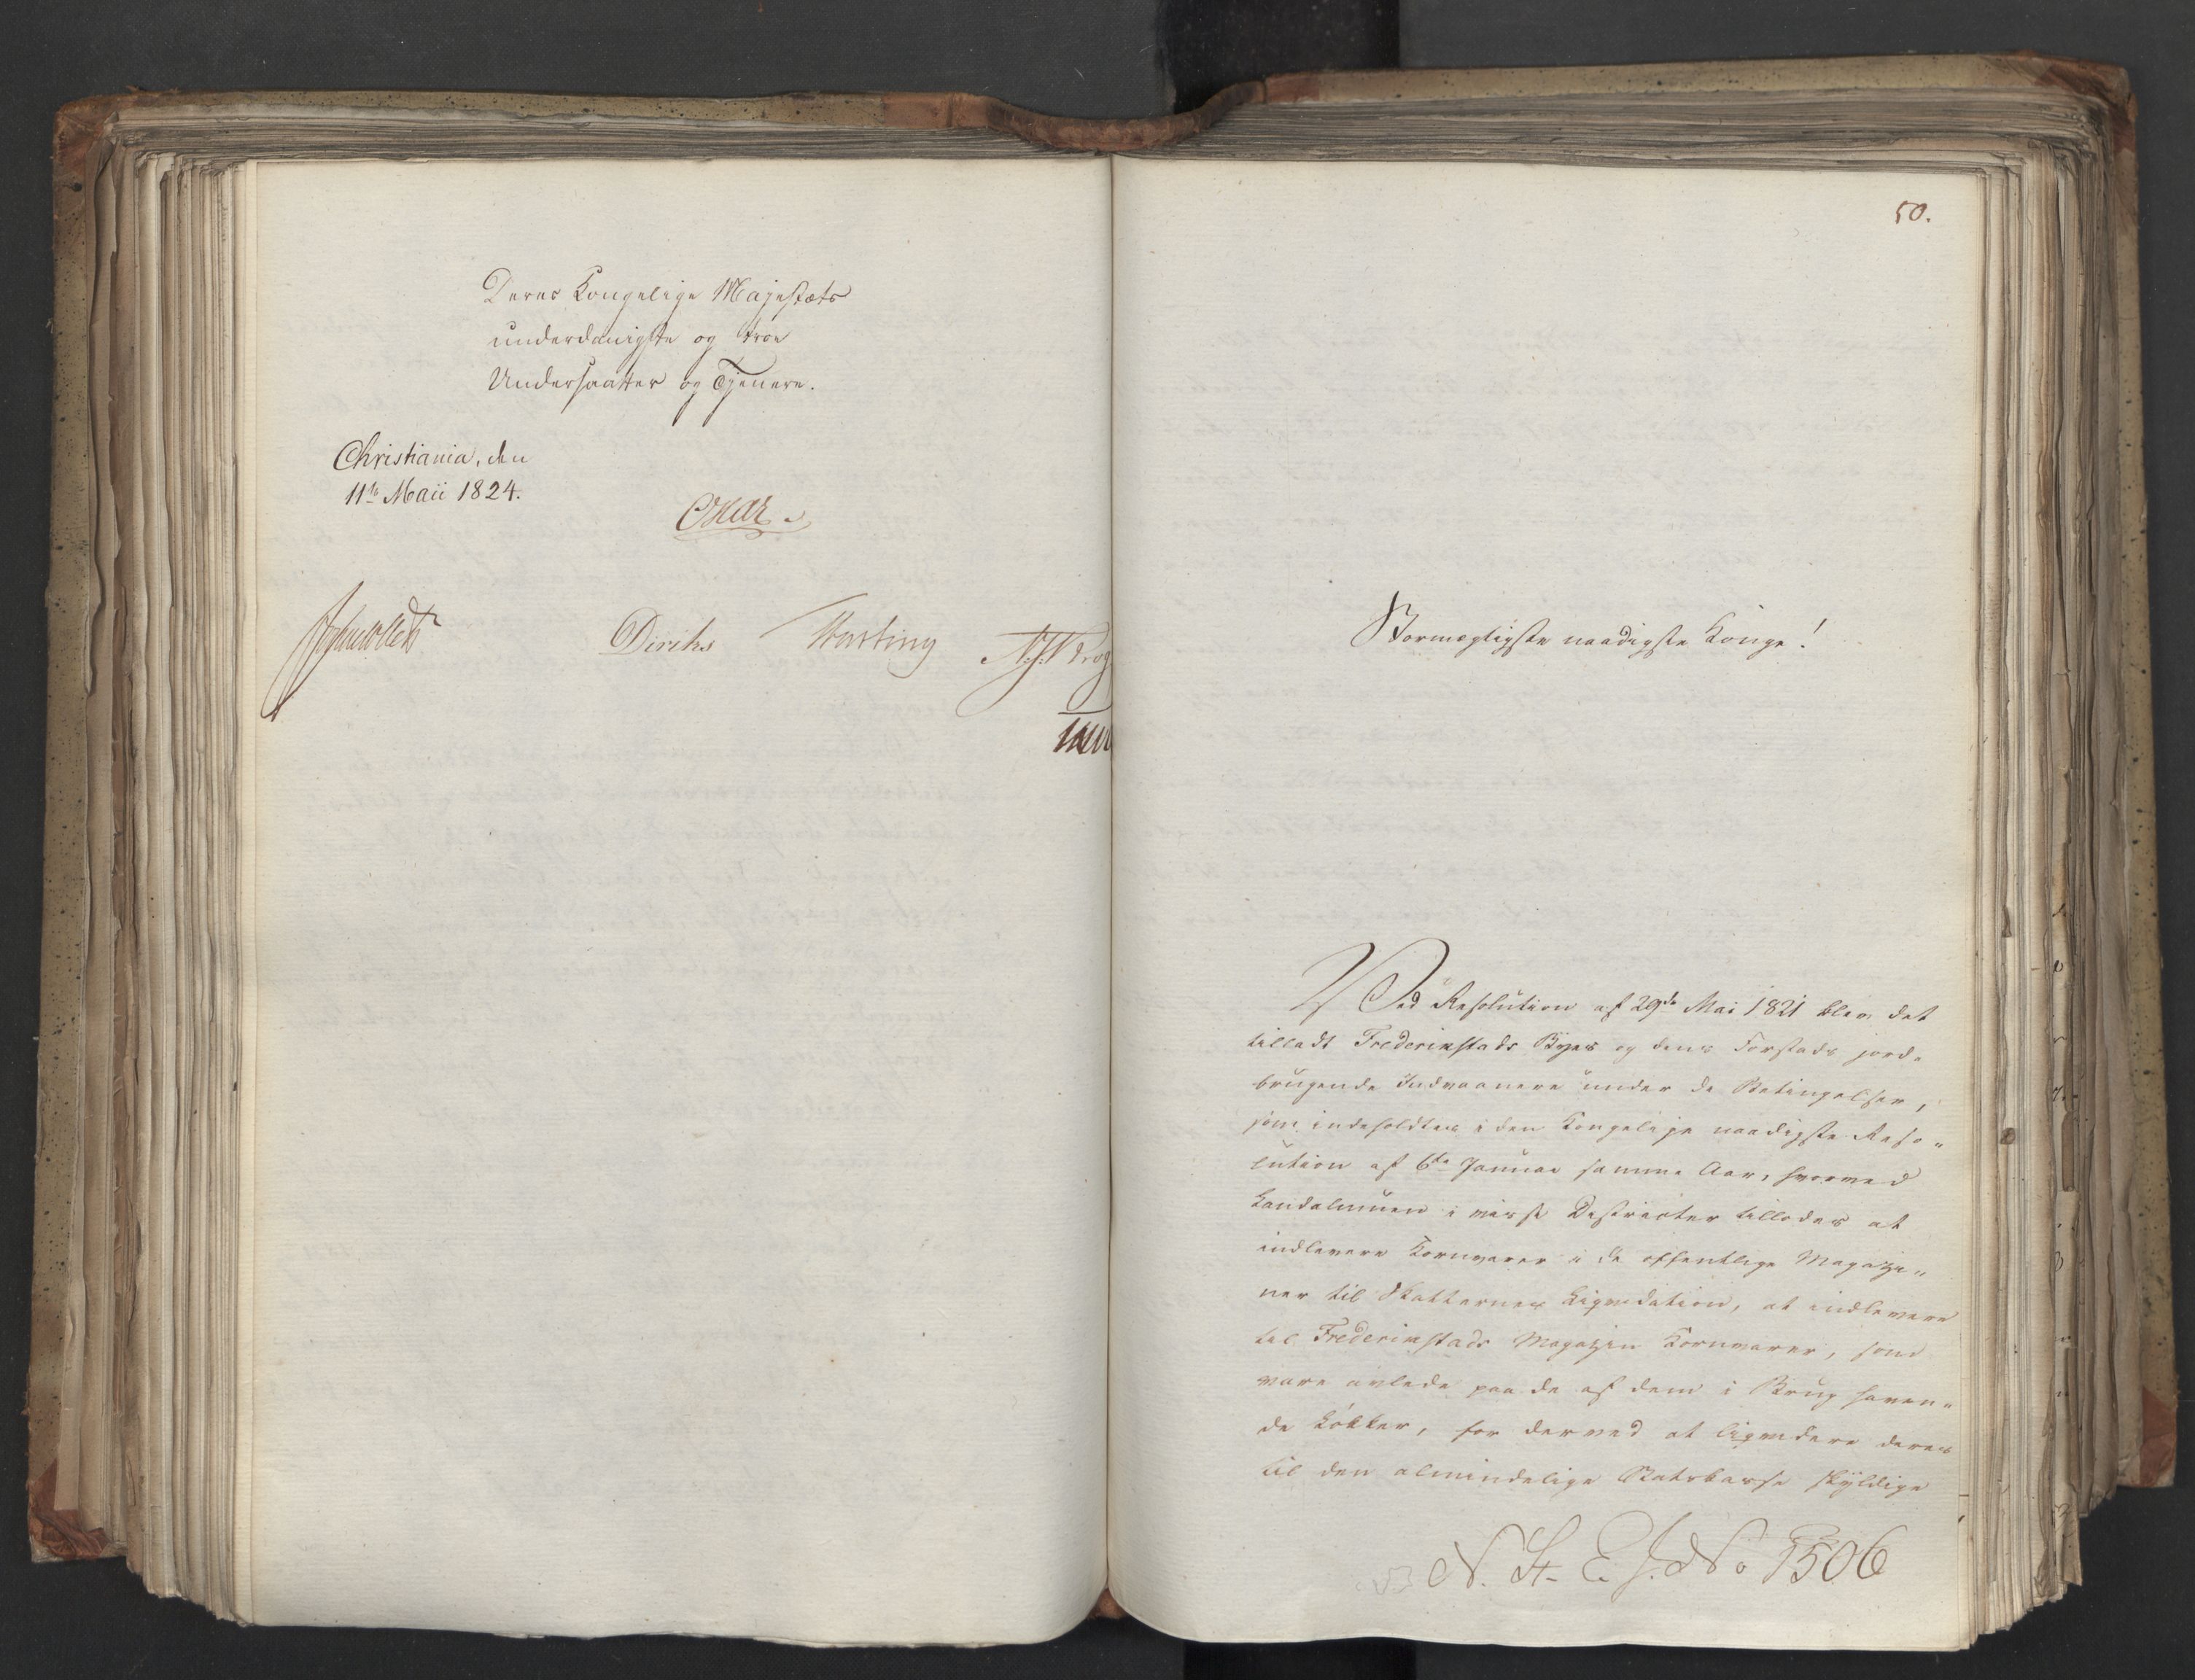 Deres Kongelige Majestæts
underdanigste og troe
Undersaatter og Tjenere.
Christiania, den
11te Maii 1824.
Oscar
Diriks
N. J. Krog
50.
Stormægtigste naadigste Konge!
Ved Resolution af 29de Mai 1821 blev det
tilladt Frederikstads Byes og dens Forstads jord-
brugende Indvaanere under de Betingelser,
som indeholdtes i den Kongelige naadigste Reso-
lution af 6te Januar samme Aar, hvorved
Landalmuen i visse Districter tillodes at
indlevere Kornvarer i de offentlige Magazi-
ner til Skatternes Liqvidation, at indlevere
til Frederikstads Magazin Kornvarer, som
vare avlede paa de af dem i Brug haven-
de Løkker, for derved at liqvidere deres
til den almindelige Statskasse skyldige
N. St. E. J. No 1506